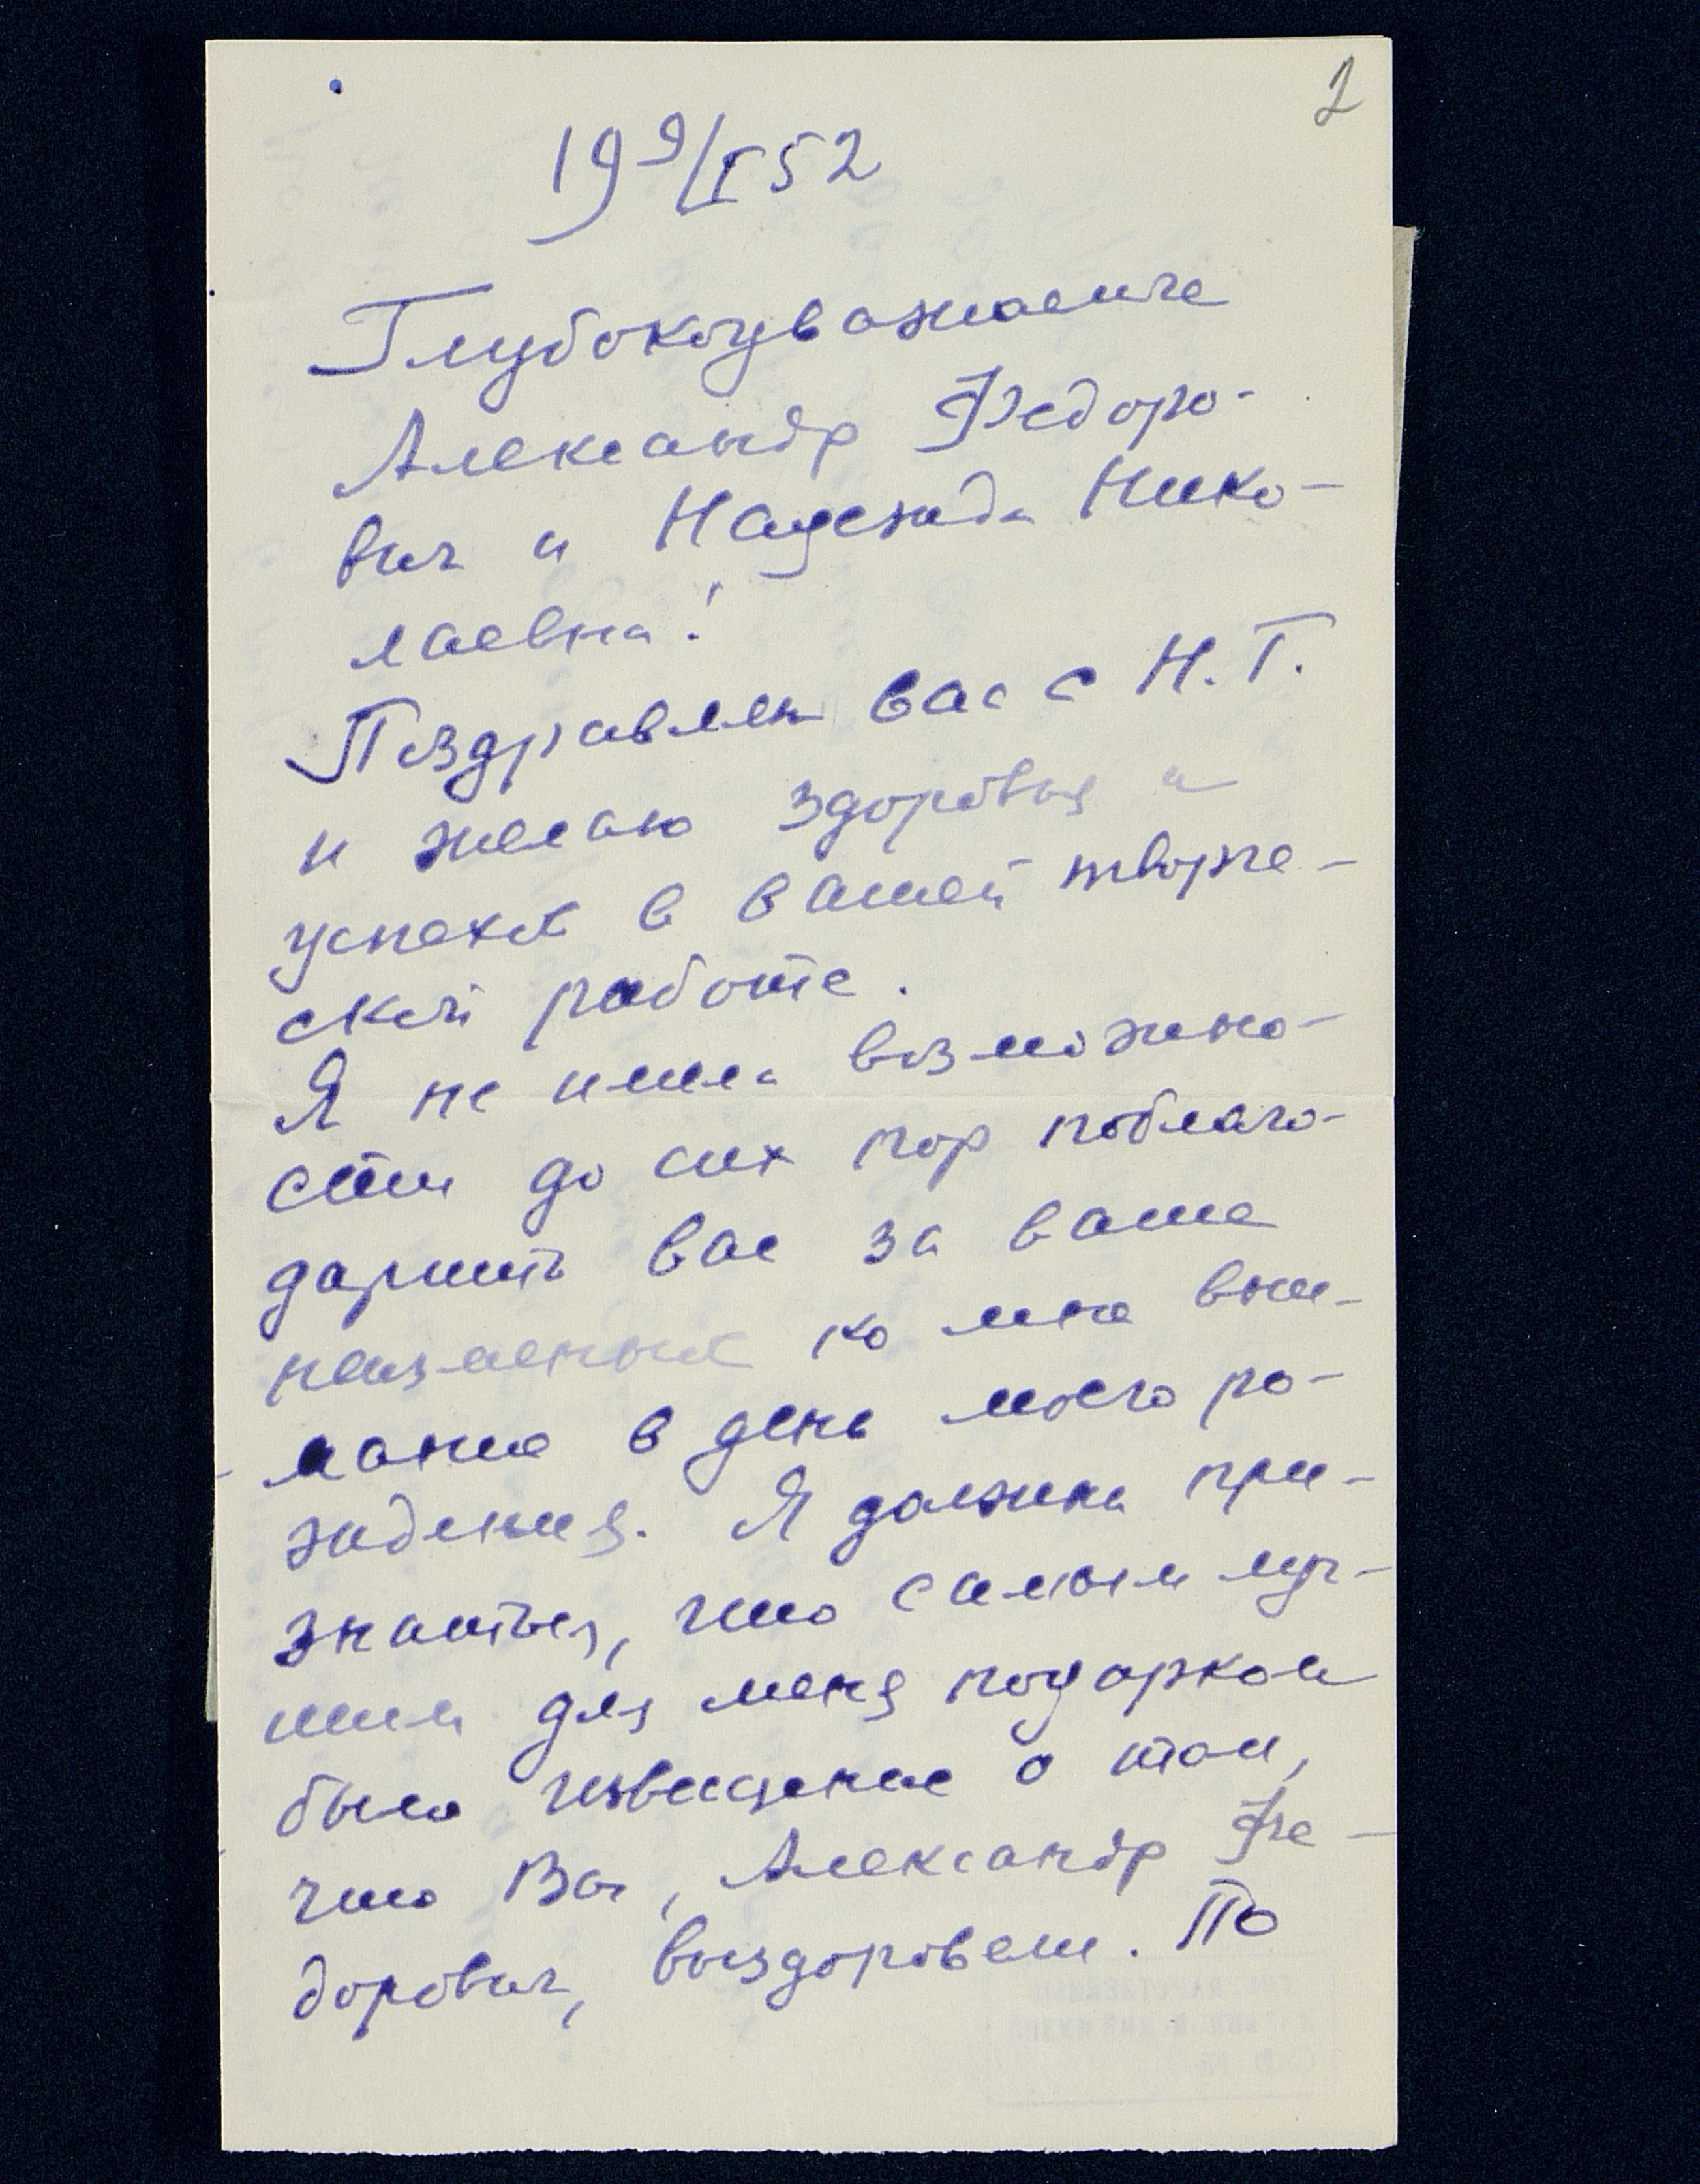 2
19 9/I 52
Глубокоуважаемые
Александр Федоро-
вич и Надежда Нико-
лаевна!
Поздравляю вас с Н. Г.
и желаю здоровья и
успехов в вашей творче-
ской работе.
Я не имела возможно-
сти до сих пор поблаго-
дарить вас за ваше
неизменное ко мне вни-
мание в день моего ро-
ждения. Я должна при-
знаться, что самым луч-
шим для меня подарком
было извещение о том,
что Вы, Александр Фе-
дорович, выздоровели. По